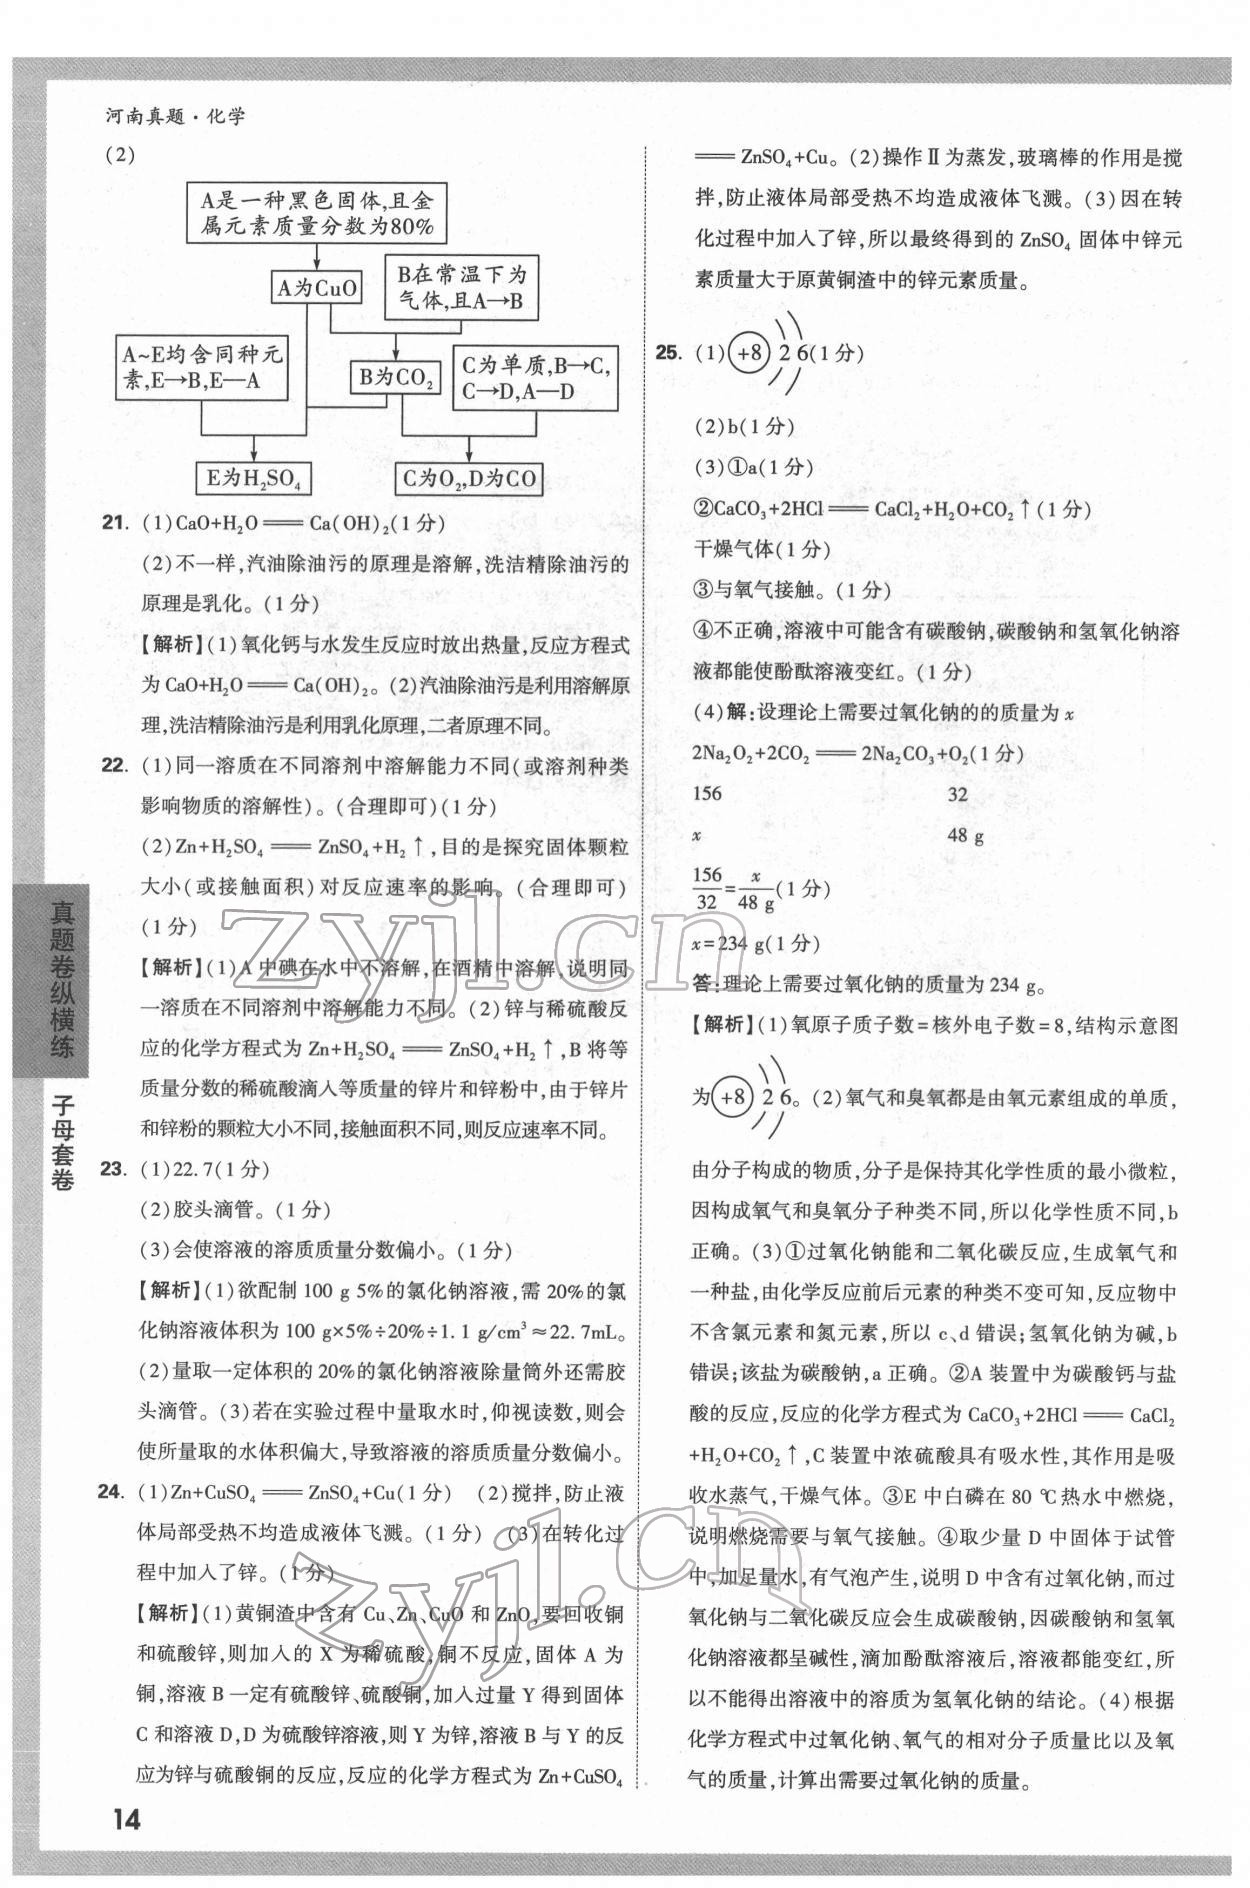 河南真题·化学
(2)
A是一种黑色固体,且金
属元素质量分数为80%
A为CuO
B在常温下为
气体,且A→B
A~E均含同种元
素,E→B,E—A
B为CO₂
C为单质,B→C,
C→D,A—D
E为H₂SO₄
C为O₂,D为CO
21. (1)CaO+H₂O══Ca(OH)₂(1分)
(2)不一样,汽油除油污的原理是溶解,洗洁精除油污的
原理是乳化。(1分)
【解析】(1)氧化钙与水发生反应时放出热量,反应方程式
为CaO+H₂O══Ca(OH)₂。(2)汽油除油污是利用溶解原
理,洗洁精除油污是利用乳化原理,二者原理不同。
22. (1)同一溶质在不同溶剂中溶解能力不同(或溶剂种类
影响物质的溶解性)。(合理即可)(1分)
(2)Zn+H₂SO₄══ZnSO₄+H₂↑,目的是探究固体颗粒
大小(或接触面积)对反应速率的影响。(合理即可)
(1分)
【解析】(1)A中碘在水中不溶解,在酒精中溶解,说明同
一溶质在不同溶剂中溶解能力不同。(2)锌与稀硫酸反
应的化学方程式为Zn+H₂SO₄══ZnSO₄+H₂↑,B将等
质量分数的稀硫酸滴入等质量的锌片和锌粉中,由于锌片
和锌粉的颗粒大小不同,接触面积不同,则反应速率不同。
23. (1)22.7(1分)
(2)胶头滴管。(1分)
(3)会使溶液的溶质质量分数偏小。(1分)
【解析】(1)欲配制100 g 5%的氯化钠溶液,需20%的氯
化钠溶液体积为100 g×5%÷20%÷1.1 g/cm³≈22.7mL。
(2)量取一定体积的20%的氯化钠溶液除量筒外还需胶
头滴管。(3)若在实验过程中量取水时,仰视读数,则会
使所量取的水体积偏大,导致溶液的溶质质量分数偏小。
24. (1)Zn+CuSO₄══ZnSO₄+Cu(1分) (2)搅拌,防止液
体局部受热不均造成液体飞溅。(1分) (3)在转化过
程中加入了锌。(1分)
【解析】(1)黄铜渣中含有Cu、Zn、CuO和ZnO,要回收铜
和硫酸锌,则加入的X为稀硫酸,铜不反应,固体A为
铜,溶液B一定有硫酸锌、硫酸铜,加入过量Y得到固体
C和溶液D,D为硫酸锌溶液,则Y为锌,溶液B与Y的反
应为锌与硫酸铜的反应,反应的化学方程式为Zn+CuSO₄
══ZnSO₄+Cu。(2)操作Ⅱ为蒸发,玻璃棒的作用是搅
拌,防止液体局部受热不均造成液体飞溅。(3)因在转
化过程中加入了锌,所以最终得到的ZnSO₄固体中锌元
素质量大于原黄铜渣中的锌元素质量。
25. (1)+8 2 6(1分)
(2)b(1分)
(3)①a(1分)
②CaCO₃+2HCl══CaCl₂+H₂O+CO₂↑(1分)
干燥气体(1分)
③与氧气接触。(1分)
④不正确,溶液中可能含有碳酸钠,碳酸钠和氢氧化钠溶
液都能使酚酞溶液变红。(1分)
(4)解:设理论上需要过氧化钠的的质量为x
2Na₂O₂+2CO₂══2Na₂CO₃+O₂(1分)
156 32
x 48 g
156/32=x/48 g(1分)
x=234 g(1分)
答:理论上需要过氧化钠的质量为234 g。
【解析】(1)氧原子质子数=核外电子数=8,结构示意图
为+8 2 6。(2)氧气和臭氧都是由氧元素组成的单质,
由分子构成的物质,分子是保持其化学性质的最小微粒,
因构成氧气和臭氧分子种类不同,所以化学性质不同,b
正确。(3)①过氧化钠能和二氧化碳反应,生成氧气和
一种盐,由化学反应前后元素的种类不变可知,反应物中
不含氯元素和氮元素,所以c、d错误;氢氧化钠为碱,b
错误;该盐为碳酸钠,a正确。②A装置中为碳酸钙与盐
酸的反应,反应的化学方程式为CaCO₃+2HCl══CaCl₂
+H₂O+CO₂↑,C装置中浓硫酸具有吸水性,其作用是吸
收水蒸气,干燥气体。③E中白磷在80 ℃热水中燃烧,
说明燃烧需要与氧气接触。④取少量D中固体于试管
中,加足量水,有气泡产生,说明D中含有过氧化钠,而过
氧化钠与二氧化碳反应会生成碳酸钠,因碳酸钠和氢氧
化钠溶液都呈碱性,滴加酚酞溶液后,溶液都能变红,所
以不能得出溶液中的溶质为氢氧化钠的结论。(4)根据
化学方程式中过氧化钠、氧气的相对分子质量比以及氧
气的质量,计算出需要过氧化钠的质量。
真题卷纵横练
子母套卷
14
zyjl.cn
zyjl.cn